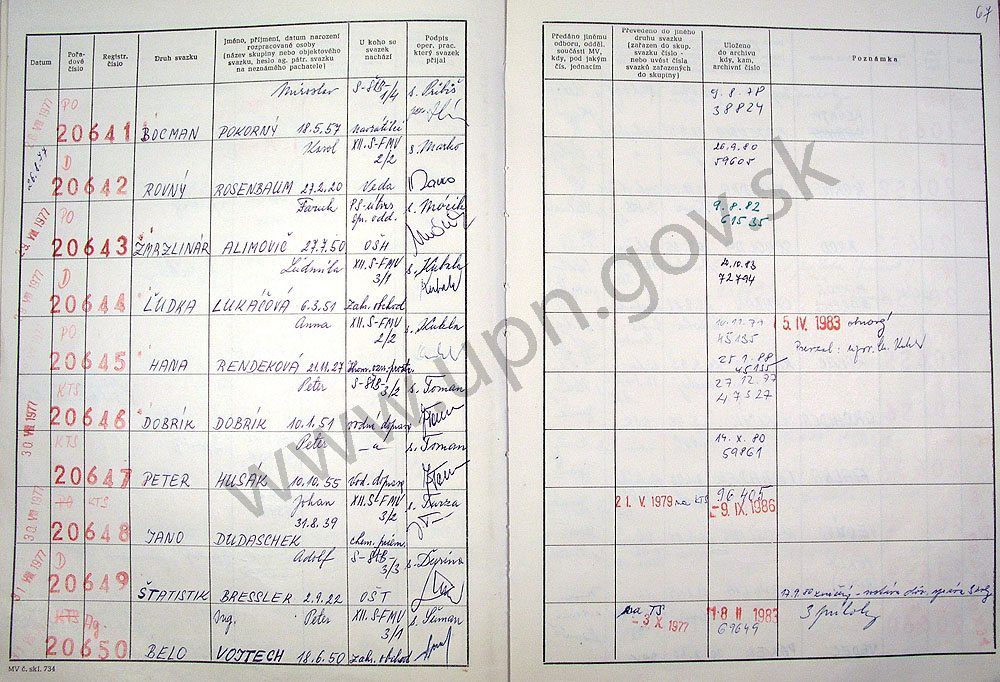 67
Datum
Pořa-
dové
číslo
Registr.
číslo
Druh svazku
Jméno, příjmení, datum narození
rozpracované osoby
(název skupiny nebo objektového
svazku, heslo ag. pátr. svazku
na neznámého pachatele)
U koho se
svazek
nachází
Podpis
oper. prac.
který svazek
přijal
Předáno jinému
odboru, odděl.
součásti MV,
kdy, pod jakým
čís. jednacím
Převedeno do jiného
druhu svazku
(zařazen do skup.
svazku číslo -
nebo uvést čísla
svazků zařazených
do skupiny)
Uloženo
do archivu
kdy, kam,
archivní číslo
Poznámka
VIII 1977 PO Miroslav S-ŠtB- 1/4 s. Pribiš 9.8.78
20641 BOCMAN POKORNÝ 18.5.57 navrátilci 38824
D Karol XII. S-FMV 2/2 s. Marko 26.9.80
20642 ROVNÝ ROSENBAUM 27.2.20 Veda 59605
VIII 1977 PO Faruk PS-útvar sp. odd. s. Močik 9.8.82
20643 ZMRZLINÁR ALIMOVIČ 27.7.50 OŠH 61535
VIII 1977 D Ľudmila XII. S-FMV 3/1 s. Kubala 4.10.83
20644 ĽUDKA LUKÁČOVÁ 6.3.51 zahr. obchod Kubala 72794
PO Anna XII. S-FMV 2/2 10.12.71 5. IV. 1983 obnový
20645 HANA RENDEKOVÁ 21.11.27 45135
25.1.88
45135
KTS Peter S-ŠtB- 3/2 s. Toman 27.12.77
20646 DOBRÍK DOBRÍK 10.1.51 47327
30 VIII 1977 KTS Peter s. Toman 14.X.80
20647 PETER HUSÁK 10.10.55 vod. dopravy 59861
30 VIII 1977 KTS Johan XII. S-FMV 3/2 s. Ďurza 21. V. 1979 na KTS 96405
31.8.39 -9. IX. 1986
20648 JANO DUDASCHEK chem. priem.
31 VIII 1977 D Adolf S-ŠtB- 3/3 s. Ďurina
20649 ŠTATISTIK BRESSLER 2.9.22 OŠT
KTS Ag. Ing. Peter XII. S-FMV 3/1 s. Šiman na TS 18 II 1983 3 prílohy
-3 X 1977
20650 BELO VOJTECH 18.6.50 zahr. obchod 69649
MV č. skl. 734
www.upn.gov.sk